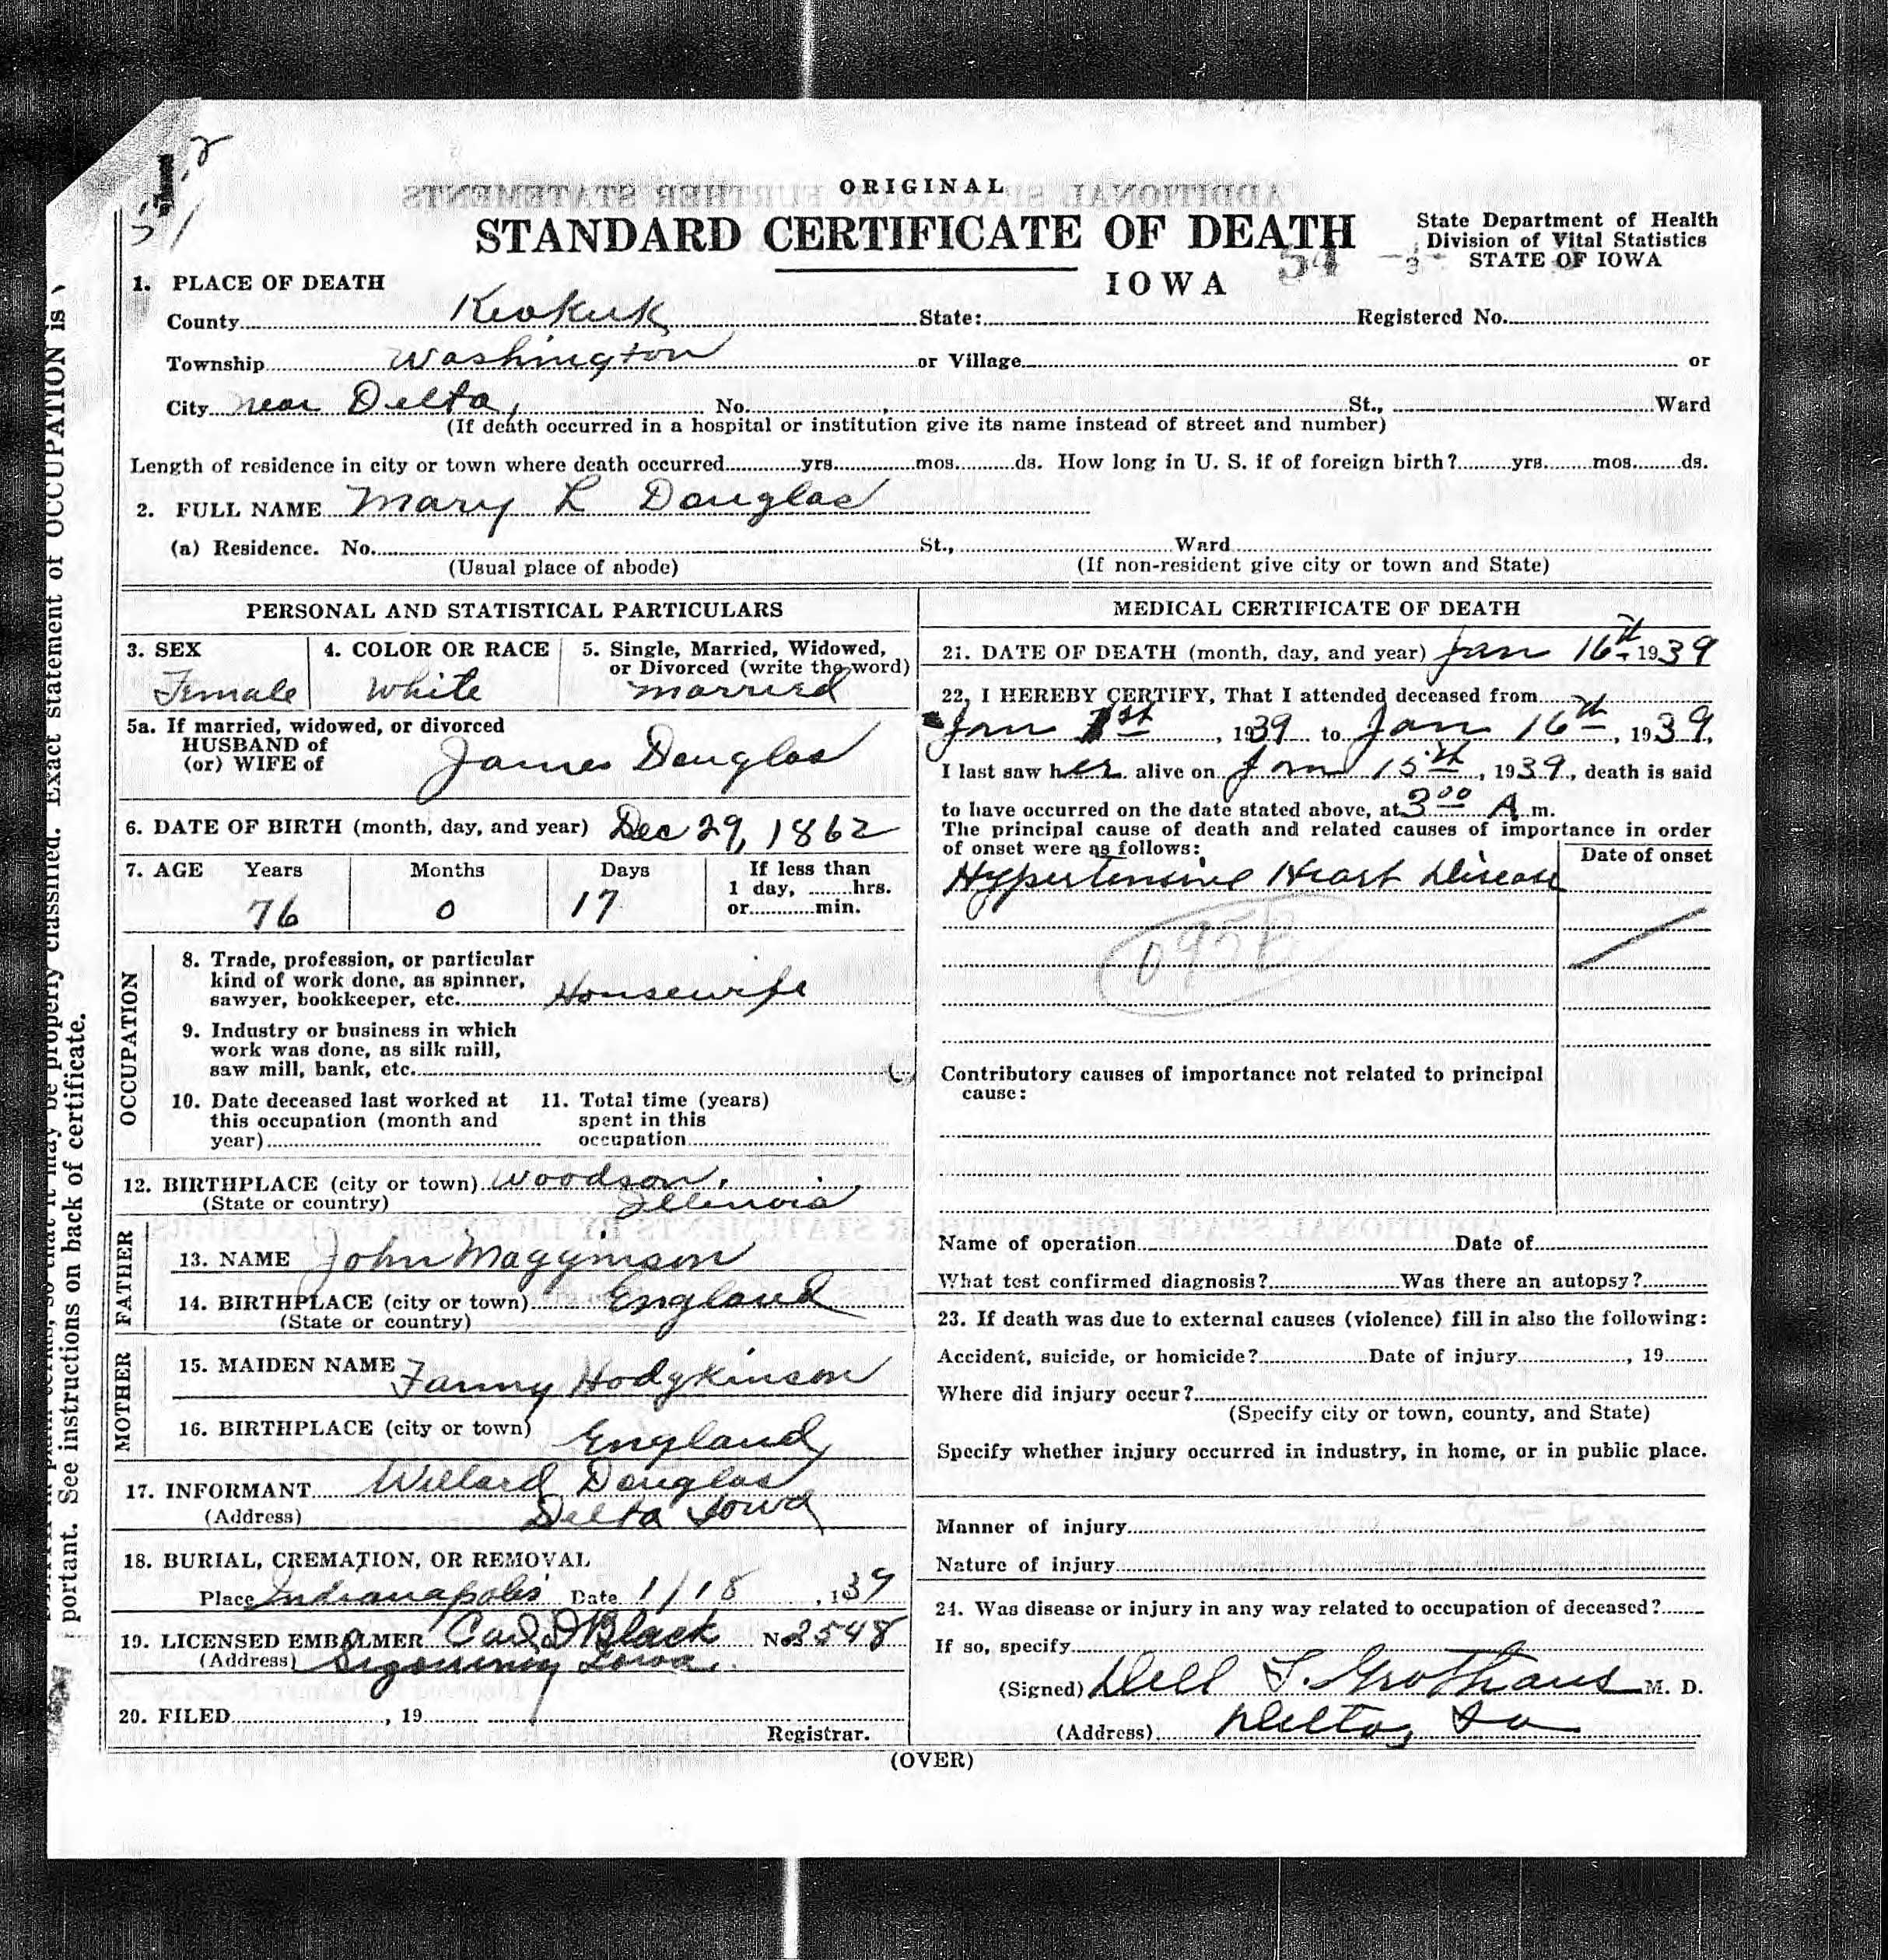 ORIGINAL
STANDARD CERTIFICATE OF DEATH
IOWA
State Department of Health
Division of Vital Statistics
STATE OF IOWA
54 -3-
1. PLACE OF DEATH
County Keokuk State: Registered No.
Township Washington or Village or
City near Delta, No. St., Ward
(If death occurred in a hospital or institution give its name instead of street and number)
Length of residence in city or town where death occurred yrs. mos. ds. How long in U. S. if of foreign birth? yrs. mos. ds.
2. FULL NAME Mary L Douglas
(a) Residence. No. St., Ward
(Usual place of abode) (If non-resident give city or town and State)
PERSONAL AND STATISTICAL PARTICULARS
3. SEX 4. COLOR OR RACE 5. Single, Married, Widowed,
or Divorced (write the word)
Female White married
5a. If married, widowed, or divorced
HUSBAND of
(or) WIFE of James Douglas
6. DATE OF BIRTH (month, day, and year) Dec 29, 1862
7. AGE Years Months Days If less than
1 day, hrs.
76 0 17 or min.
OCCUPATION
8. Trade, profession, or particular
kind of work done, as spinner,
sawyer, bookkeeper, etc. Housewife
9. Industry or business in which
work was done, as silk mill,
saw mill, bank, etc.
10. Date deceased last worked at
this occupation (month and
year)
11. Total time (years)
spent in this
occupation
12. BIRTHPLACE (city or town) Woodson,
(State or country) Illinois
FATHER
13. NAME John Magginson
14. BIRTHPLACE (city or town) England
(State or country)
MOTHER
15. MAIDEN NAME Fanny Hodgkinson
16. BIRTHPLACE (city or town) England
17. INFORMANT Willard Douglas
(Address) Delta Iowa
18. BURIAL, CREMATION, OR REMOVAL
Place Indianapolis Date 1/18, 139
19. LICENSED EMBALMER Carl D Black No. 2548
(Address) Sigourney Iowa.
20. FILED , 19
Registrar.
MEDICAL CERTIFICATE OF DEATH
21. DATE OF DEATH (month, day, and year) Jan 16th 1939
22. I HEREBY CERTIFY, That I attended deceased from
Jan 1st, 1939 to Jan 16th, 1939,
I last saw her alive on Jan 15th, 1939, death is said
to have occurred on the date stated above, at 3 00 A.m.
The principal cause of death and related causes of importance in order
of onset were as follows:
Date of onset
Hypertensive Heart Disease
095B
Contributory causes of importance not related to principal
cause:
Name of operation Date of
What test confirmed diagnosis? Was there an autopsy?
23. If death was due to external causes (violence) fill in also the following:
Accident, suicide, or homicide? Date of injury , 19
Where did injury occur?
(Specify city or town, county, and State)
Specify whether injury occurred in industry, in home, or in public place.
Manner of injury
Nature of injury
24. Was disease or injury in any way related to occupation of deceased?
If so, specify
(Signed) Dell L. Grothaus M. D.
(Address) Delta, Ia
(OVER)
so that it may be properly classified. Exact statement of OCCUPATION is
portant. See instructions on back of certificate.